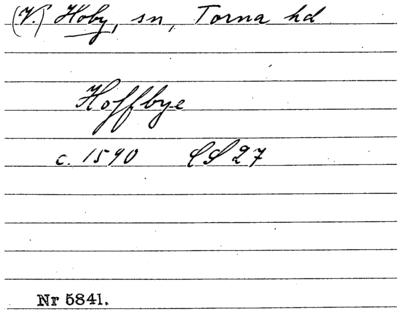 (V.) Hoby, sn, Torna hd
Hoffbye
c. 1590 LS 27
Nr 5841.